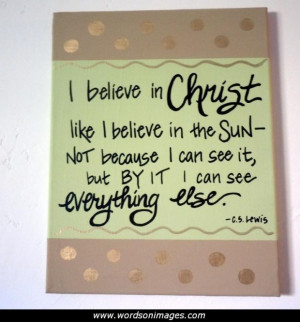 I believe in Christ
like I believe in the SUN-
NOT because I can see it,
but BY IT I can see
everything else.
-C.S. Lewis
www.wordsonimages.com